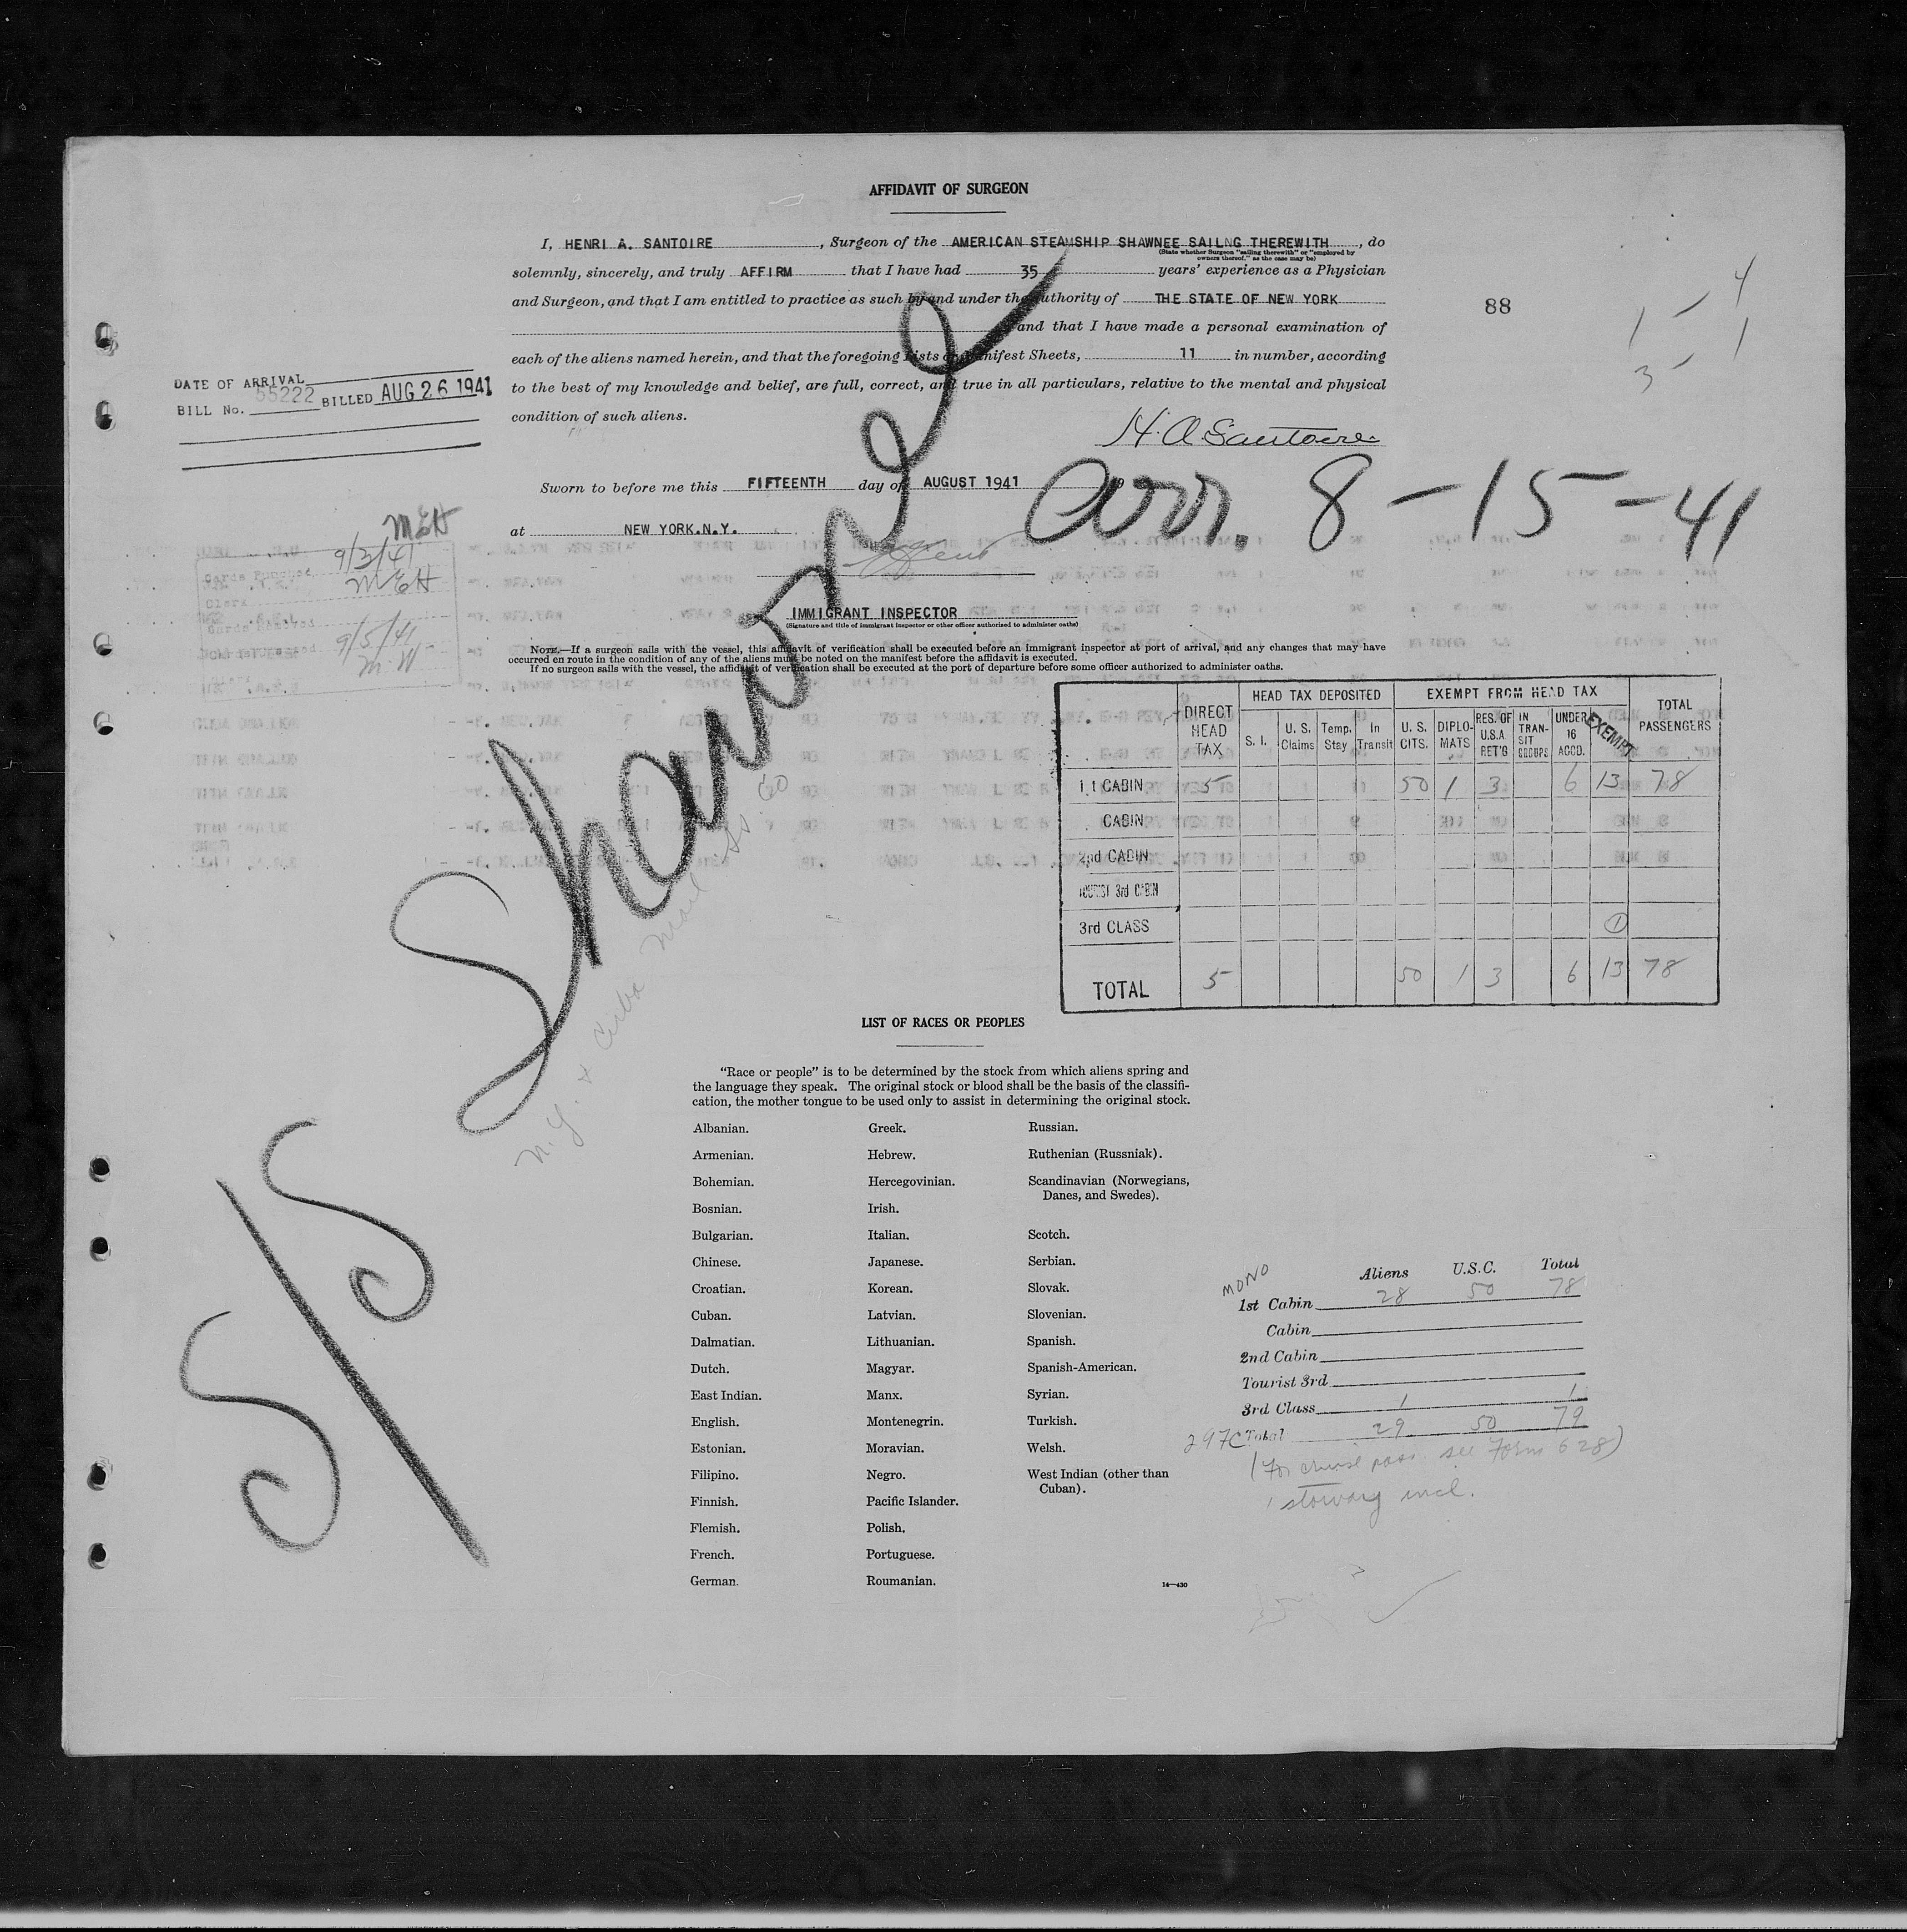 AFFIDAVIT OF SURGEON
I, HENRI A. SANTOIRE, Surgeon of the AMERICAN STEAMSHIP SHAWNEE SAILNG THEREWITH, do
(State whether Surgeon "sailing therewith" or "employed by
owners thereof," as the case may be)
solemnly, sincerely, and truly AFFIRM that I have had 35 years' experience as a Physician
and Surgeon, and that I am entitled to practice as such by and under the authority of THE STATE OF NEW YORK
and that I have made a personal examination of
each of the aliens named herein, and that the foregoing Lists or Manifest Sheets, 11 in number, according
to the best of my knowledge and belief, are full, correct, and true in all particulars, relative to the mental and physical
condition of such aliens.
88
4
1 - 1
3 -
DATE OF ARRIVAL
BILL No. 55222 BILLED AUG 26 1941
H. A. Santoire
Sworn to before me this FIFTEENTH day of AUGUST 1941 19
arr. 8-15-41
at NEW YORK.N.Y.
MEH
Cards Punched 9/3/41
Clerk MEH
9/5/41
M.W
IMMIGRANT INSPECTOR
(Signature and title of immigrant inspector or other officer authorized to administer oaths)
NOTE.—If a surgeon sails with the vessel, this affidavit of verification shall be executed before an immigrant inspector at port of arrival, and any changes that may have
occurred en route in the condition of any of the aliens must be noted on the manifest before the affidavit is executed.
If no surgeon sails with the vessel, the affidavit of verification shall be executed at the port of departure before some officer authorized to administer oaths.
S/S Shawnee
N.Y. & Cuba Mail SS. Co
DIRECT HEAD TAX HEAD TAX DEPOSITED EXEMPT FROM HEAD TAX TOTAL PASSENGERS
S. I. U. S. Claims Temp. Stay In Transit U. S. CITS. DIPLO-MATS RES. OF U.S.A RET'G IN TRAN-SIT GROUPS UNDER 16 ACCD. EXEMPT
1 t CABIN 5 50 1 3 6 13 78
CABIN
2nd CABIN
TOURIST 3rd CABIN
3rd CLASS 1
TOTAL 5 50 1 3 6 13 78
LIST OF RACES OR PEOPLES
"Race or people" is to be determined by the stock from which aliens spring and
the language they speak. The original stock or blood shall be the basis of the classifi-
cation, the mother tongue to be used only to assist in determining the original stock.
Albanian.
Armenian.
Bohemian.
Bosnian.
Bulgarian.
Chinese.
Croatian.
Cuban.
Dalmatian.
Dutch.
East Indian.
English.
Estonian.
Filipino.
Finnish.
Flemish.
French.
German.
Greek.
Hebrew.
Hercegovinian.
Irish.
Italian.
Japanese.
Korean.
Latvian.
Lithuanian.
Magyar.
Manx.
Montenegrin.
Moravian.
Negro.
Pacific Islander.
Polish.
Portuguese.
Roumanian.
Russian.
Ruthenian (Russniak).
Scandinavian (Norwegians,
Danes, and Swedes).
Scotch.
Serbian.
Slovak.
Slovenian.
Spanish.
Spanish-American.
Syrian.
Turkish.
Welsh.
West Indian (other than
Cuban).
14—430
MONO
Aliens U.S.C. Total
1st Cabin 28 50 78
Cabin
2nd Cabin
Tourist 3rd
3rd Class 1 1
297C Total 29 50 79
(For cruise pass. see Form 628)
1 stowaway incl.